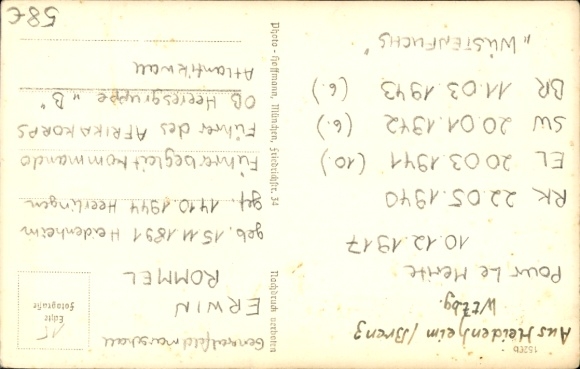 1526b
Aus Heidenheim/Brenz
Wttbg.
Pour Le Merite
10.12.1917
RK 22.05.1940
EL 20.03.1941 (10.)
SW 20.01.1942 (6.)
BR 11.03.1943 (6.)
"WÜSTENFUCHS"
Nachdruck verboten
Photo-Hoffmann, München, Friedrichstr. 34
Generalfeldmarschall
ERWIN
ROMMEL
Echte
Fotografie
15
geb. 15.11.1891 Heidenheim
gef. 14.10.1944 Heerlingen
Führerbegleitkommando
Führer des AFRIKAKORPS
OB Heeresgruppe "B"
Atlantikwall
58€